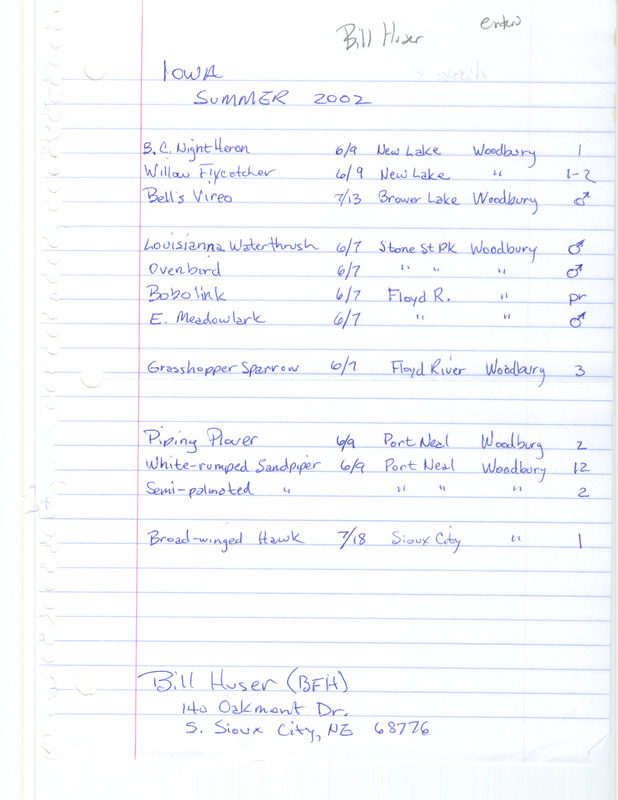 Bill Huser enter
IOWA
SUMMER 2002
B.C. Night Heron 6/9 New Lake Woodbury 1
Willow Flycotcher 6/9 New Lake " 1-2
Bell's Vireo 7/13 Brower Lake Woodbury ♂
Louisianna Waterthrush 6/7 Stone St Pk Woodbury ♂
Ovenbird 6/7 " " " ♂
Bobolink 6/7 Floyd R. " pr
E. Meadowlark 6/7 " " ♂
Grasshopper Sparrow 6/7 Floyd River Woodbury 3
Piping Plover 6/9 Port Neal Woodbury 2
White-rumped Sandpiper 6/9 Port Neal Woodbury 12
Semi-palmated " " " " 2
Broad-winged Hawk 7/18 Sioux City " 1
Bill Huser (BFH)
140 Oakmont Dr.
S. Sioux City, NE 68776